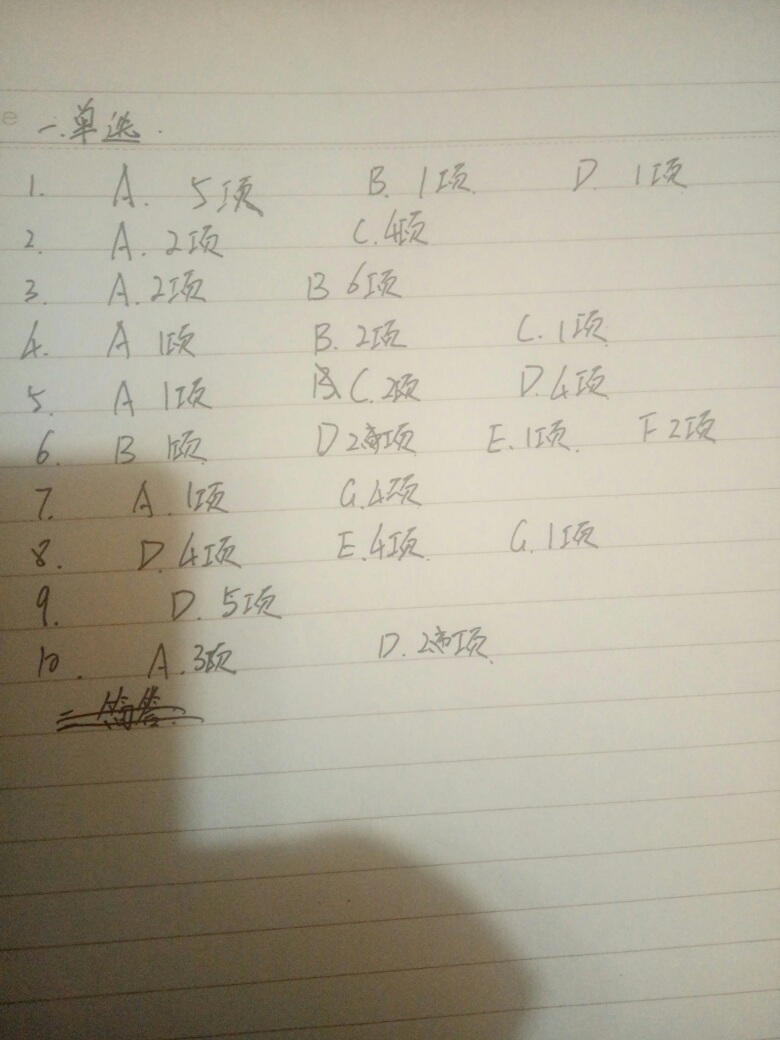 e
一.单选.
1. A. 5项 B. 1项 D. 1项
2. A. 2项 C. 4项
3. A. 2项 B 6项
4. A 1项 B. 2项 C. 1项
5. A 1项 C. 2项 D. 4项
6. B 1项 D 2项 E. 1项. F 2项
7. A. 1项 G. 4项
8. D. 4项 E. 4项 G. 1项
9. D. 5项
10. A. 3项 D. 2项
二 简答